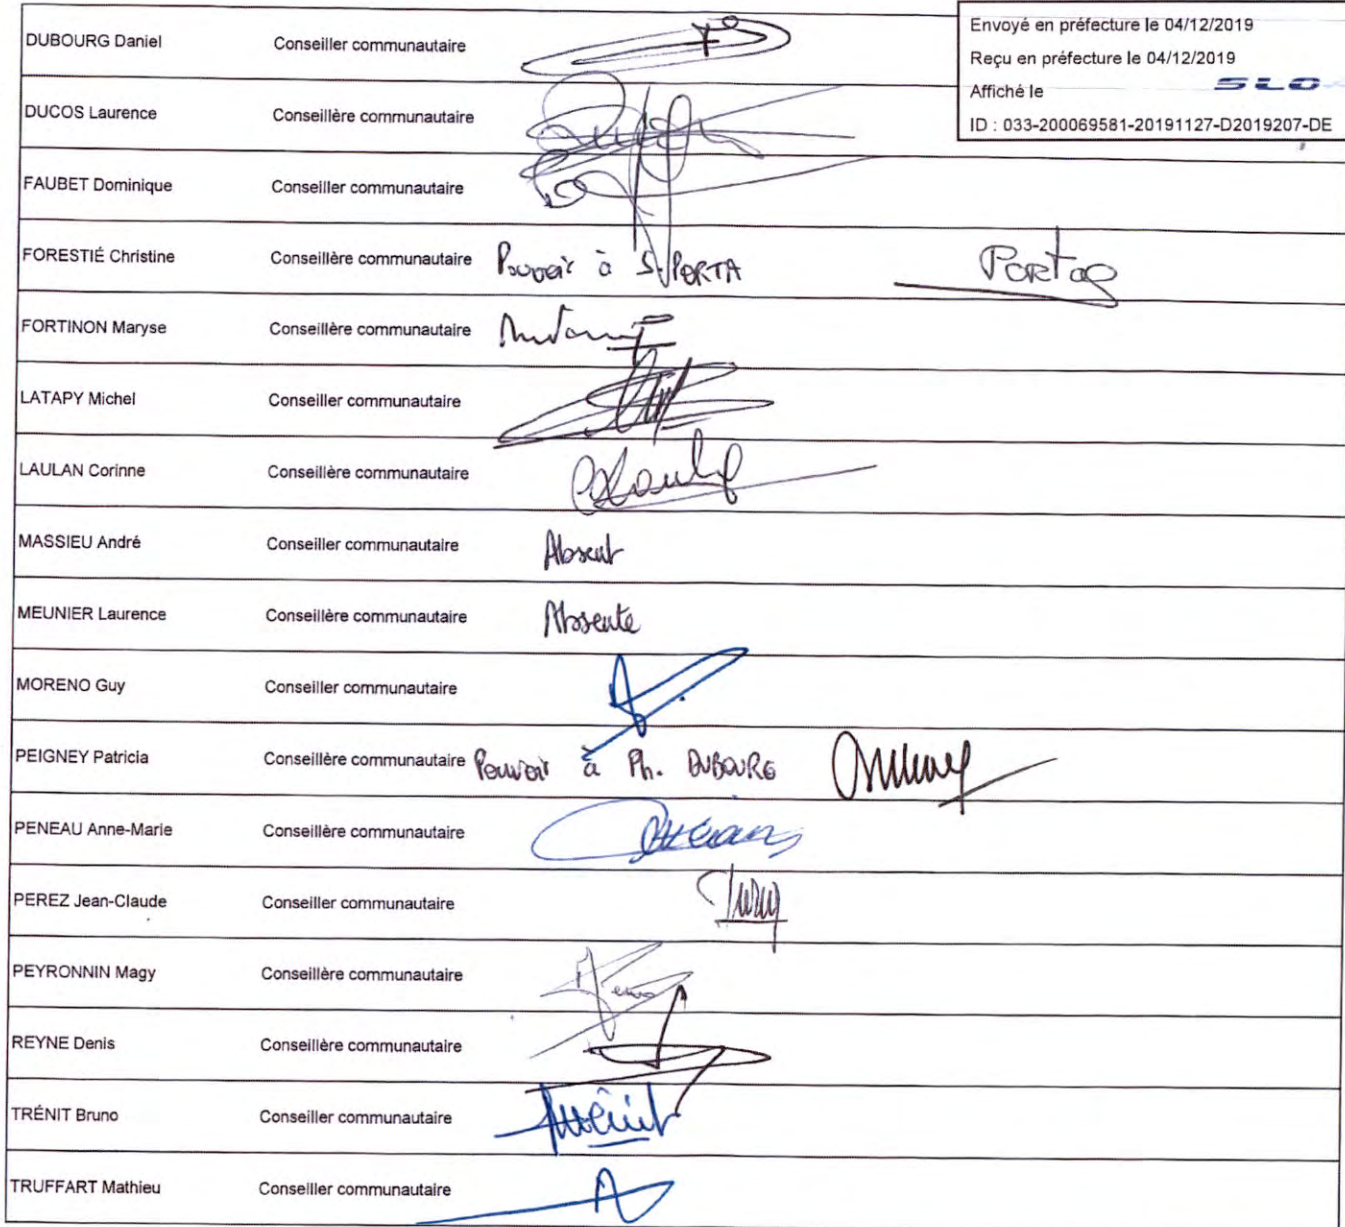 Envoyé en préfecture le 04/12/2019
Reçu en préfecture le 04/12/2019
Affiché le SLO
ID : 033-200069581-20191127-D2019207-DE
DUBOURG Daniel Conseiller communautaire
DUCOS Laurence Conseillère communautaire
FAUBET Dominique Conseiller communautaire
FORESTIÉ Christine Conseillère communautaire Pouvoir à S. PORTA Porta
FORTINON Maryse Conseillère communautaire
LATAPY Michel Conseiller communautaire
LAULAN Corinne Conseillère communautaire
MASSIEU André Conseiller communautaire Absent
MEUNIER Laurence Conseillère communautaire Absente
MORENO Guy Conseiller communautaire
PEIGNEY Patricia Conseillère communautaire Pouvoir à Ph. DUBOURG
PENEAU Anne-Marie Conseillère communautaire
PEREZ Jean-Claude Conseiller communautaire
PEYRONNIN Magy Conseillère communautaire
REYNE Denis Conseillère communautaire
TRÉNIT Bruno Conseiller communautaire
TRUFFART Mathieu Conseiller communautaire